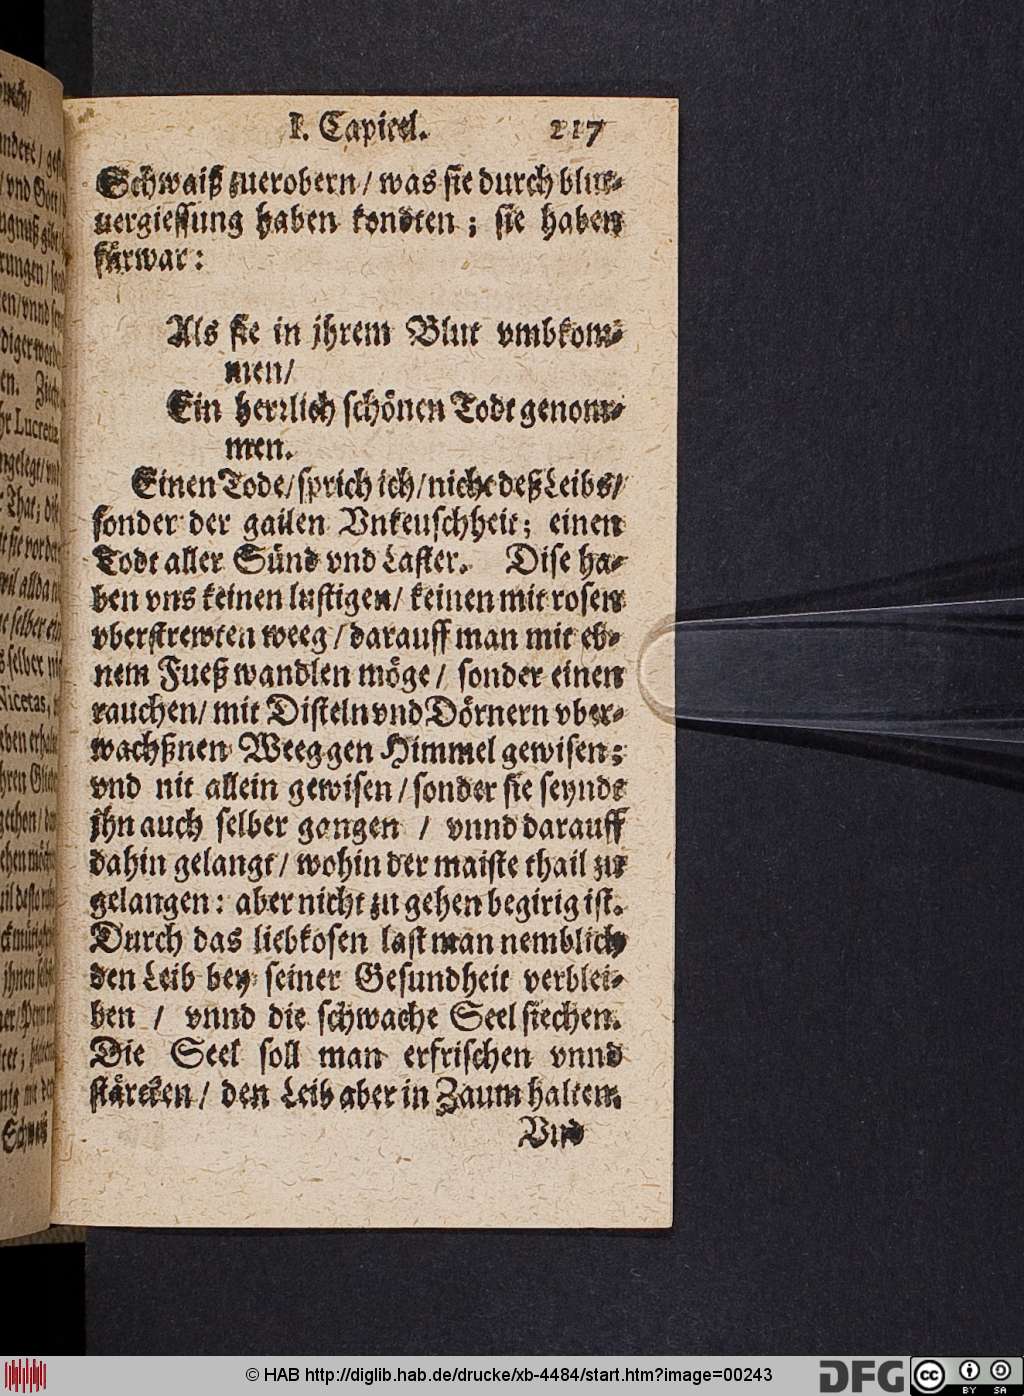 I. Capitel. 217
Schwaiß zuerobern / was sie durch blut-
uergiessung haben kondten ; sie haben
fürwar :
Als sie in jhrem Blut vmbkom-
men/
Ein herrlich schönen Todt genom-
men.
Einen Tode/ sprich ich/ nicht deß Leibs/
sonder der gailen Vnkeuschheit; einen
Todt aller Sünd vnd Laster. Dise ha-
ben vns keinen lustigen/ keinen mit rosen
vberstrewten weeg / darauff man mit eb-
nem Fueß wandlen möge / sonder einen
rauchen/ mit Disteln vnd Dörnern vber-
wachßnen Weeg gen Himmel gewisen:
vnd nit allein gewisen / sonder sie seynde
jhn auch selber gangen / vnnd darauff
dahin gelangt / wohin der maiste thail zu
gelangen : aber nicht zu gehen begirig ist.
Durch das liebkosen last man nemblich
den Leib bey seiner Gesundheit verblei-
ben / vnnd die schwache Seel siechen.
Die Seel soll man erfrischen vnnd
stärcken / den Leib aber in Zaum halten.
Vnd
© HAB http://diglib.hab.de/drucke/xb-4484/start.htm?image=00243
DFG
cc BY SA